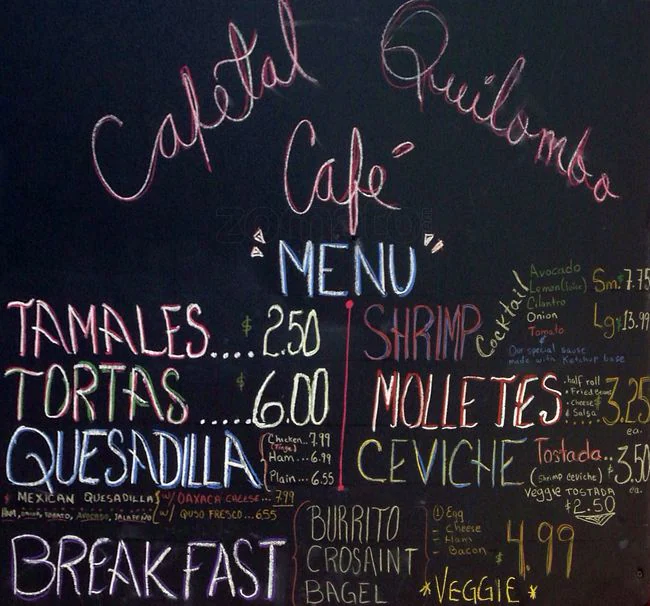 Cafetal Quilombo
Café
"MENU"
TAMALES.... $2.50
TORTAS ..... $6.00
QUESADILLA
Chicken... 7.99
(Tinga)
Ham... 6.99
Plain... 6.55
MEXICAN QUESADILLA w/ OAXACA CHEESE... 7.99
HAM, ONION, TOMATO, AVOCADO, JALAPEÑO w/ QUSO FRESCO... 6.55
BREAKFAST
BURRITO
CROSAINT
BAGEL
(1) Egg
- Cheese
- Ham
- Bacon
$4.99
*VEGGIE*
SHRIMP Cocktail
Avocado
Lemon (Juice)
Cilantro
Onion
Tomato
Our special sause
made with Ketchup base
Sm. $7.75
Lg $13.99
MOLLETES
.half roll
• Fried Beans
• Cheese
& Salsa
$3.25
ea.
CEVICHE
Tostada.. $3.50
(shrimp ceviche)
ea.
Veggie TOSTADA
$2.50
zomato